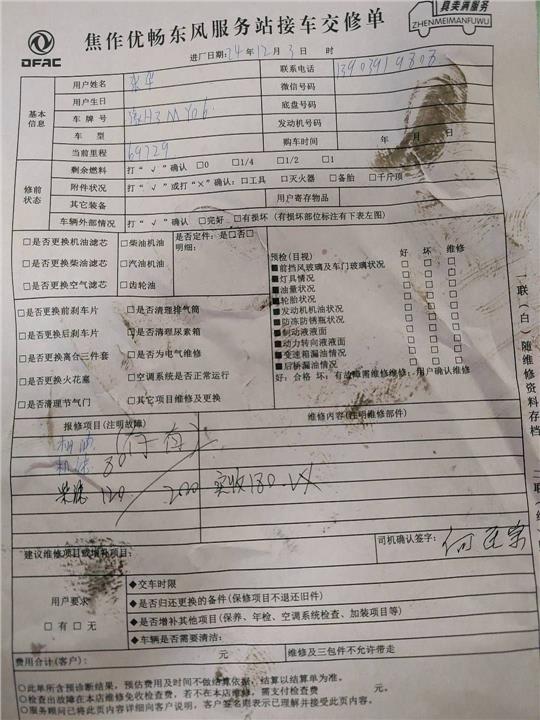 DFAC
焦作优畅东风服务站接车交修单
具美满服务
ZHENMEIMANFUWU
进厂日期:24年12月3日 时
基本信息
用户姓名
联系电话
用户生日
微信号码
车牌号
底盘号码
车型
发动机号码
当前里程 69729
购车时间 年 月 日
修前状态
剩余燃料 打“√”确认 □0 □1/4 □1/2 □1
附件状况 打“√”或打“×”确认:□工具 □灭火器 □备胎 □千斤顶
其它装备
用户寄存物品
车辆外部情况 打“√”确认 □完好 □有损坏(有损坏部位标注有下表左图)
□是否更换机油滤芯 □柴油机油
□是否更换柴油滤芯 □汽油机油
□是否更换空气滤芯 □齿轮油
是否定件:是□否□
明细:
预检(目视) 好 坏 维修
■前挡风玻璃及车门玻璃状况 □ □ □
■灯具情况 □ □ □
■油量状况 □ □ □
■轮胎状况 □ □ □
■发动机机油状况 □ □ □
■防冻防锈瓶状况 □ □ □
■制动液液面 □ □ □
■动力转向液液面 □ □ □
■变速箱漏油情况 □ □ □
■后桥漏油情况 □ □ □
好:合格 坏:有故障需维修维修:用户确认维修
□是否更换前刹车片 □是否清理排气筒
□是否更换后刹车片 □是否清理尿素箱
□是否更换离合三件套 □是否为电气维修
□是否更换火花塞 □空调系统是否正常运行
□是否清理节气门 □其它项目维修及更换
报修项目(注明故障)
维修内容(注明维修部件)
机油
机滤 80
柴滤 120 200 实收180
建议维修项目或增补项目:
司机确认签字:
用户要求
□有□无
◆交车时限
◆是否归还更换的备件(保修项目不退还旧件)
◆是否增补其他项目(保养、年检、空调系统检查、加装项目等)
◆车辆是否需要清洁:
费用合计(客户): 元
维修及三包件不允许带走
○此单所含预诊断结果,预估费用及时间不做结算依据,结算以结算单为准。
○检查出故障在本店维修免收检查费,若不在本店维修,需支付检查费 元。
○服务顾问已将此页内容详细向客户说明,客户签名则表示已理解并接受此页内容。
一联(白)随维修资料存档